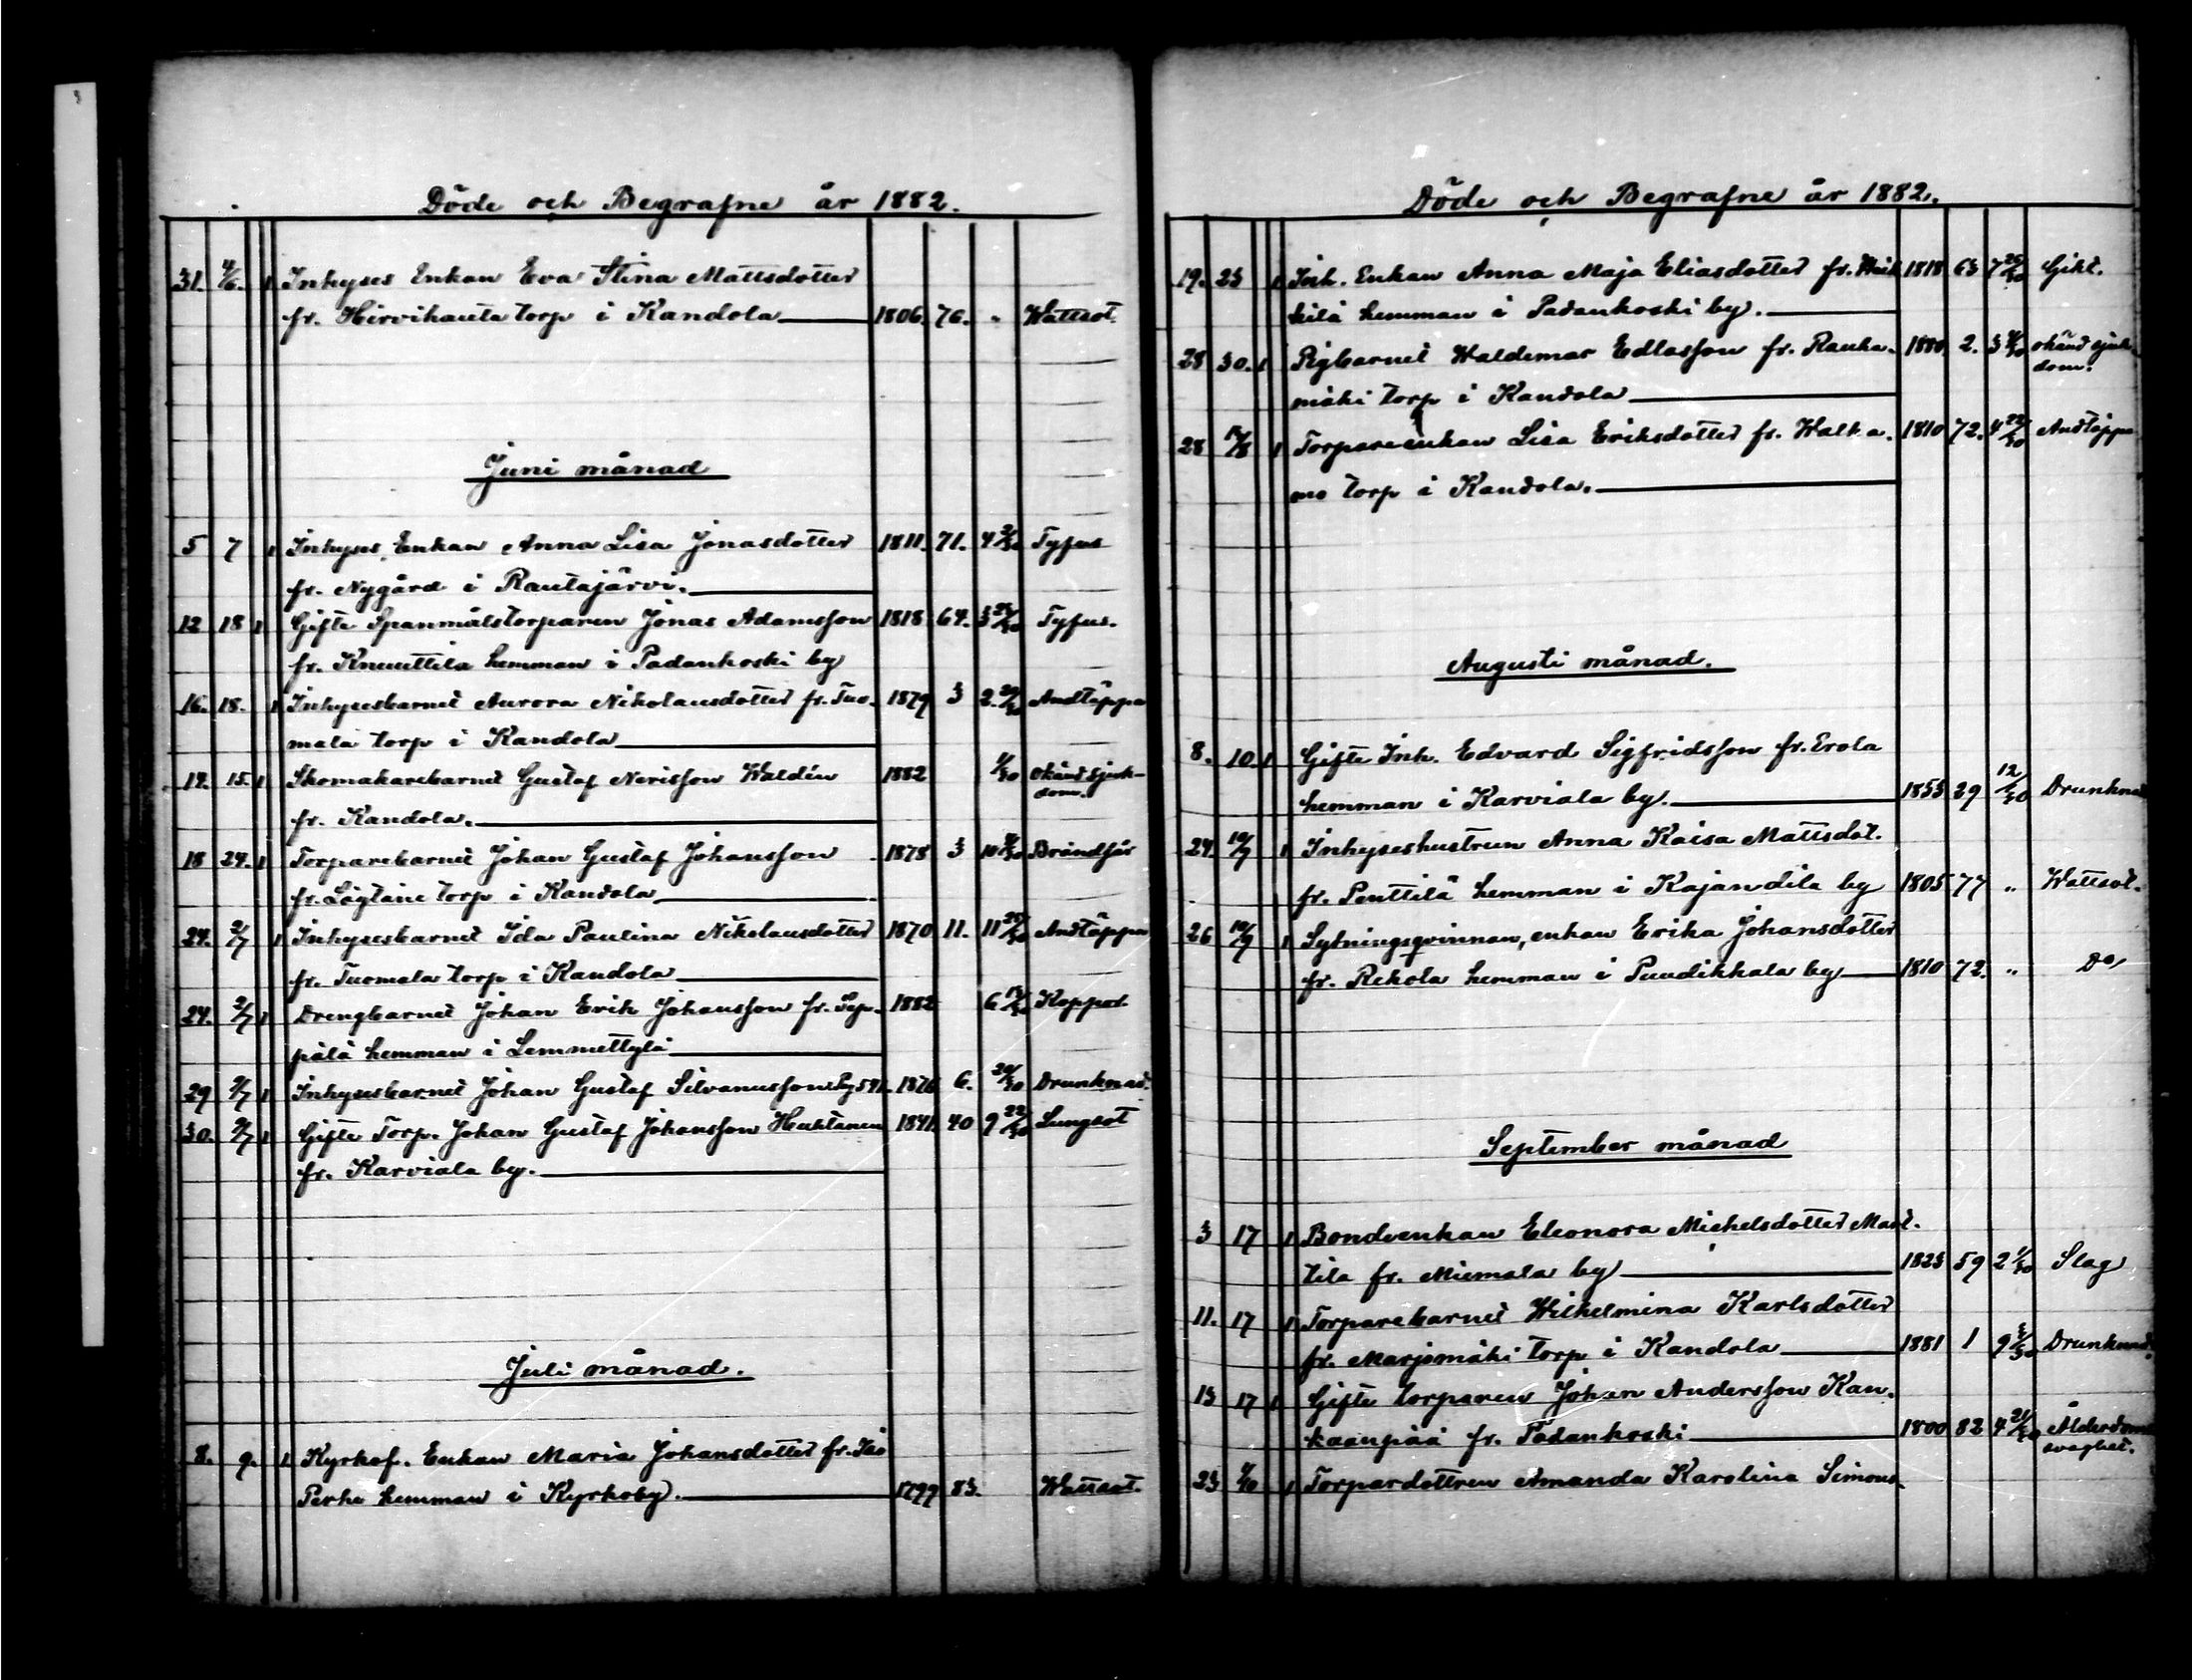 Döde och Begrafne år 1882.
31. 4/6. 1 Inhyses Enkan Eva Stina Mattsdotter
fr. Hirvihauta torp i Kandola 1806. 76. " Wattsot.
Juni månad
5 7 1 Inhyses Enkan Anna Lisa Jonasdotter 1811. 71. 4 2/30 Tyfus
fr. Nygård i Rautajärvi.
12 18 1 Gifte Spanmålstorparen Jonas Adamsson 1818 64. 3 25/30 Tyfus.
fr. Knuuttila hemman i Padankoski by
16. 18. 1 Inhysesbarnet Aurora Nikolausdotter fr. Tuo- 1879 3 2 Andtäppa
mala torp i Kandola
14. 15. 1 Skomakarebarnet Gustaf Nerisson Waldén 1882 1/30 Okänd sjuk-
dom.
fr. Kandola.
18 24. 1 Torparebarnet Johan Gustaf Johansson 1878 3 10 Brändsår
fr. Lögtäne torp i Kandola
24. 2/7 1 Inhysesbarnet Ida Paulina Nikolausdotter 1870 11. 11 25/30 Andtäppa
fr. Tuomala torp i Kandola
24. 2/7 1 Drengbarnet Johan Erik Johansson fr. Sep- 1882 6 Koppor.
pälä hemman i Lemmettylä
29 2/7 1 Inhysesbarnet Johan Gustaf Silvanusson Pg 591. 1876 6. 24/30 Drunknad.
30. 2/7 1 Gifte Torp. Johan Gustaf Johansson Huhtanen 1841. 40 9 22/30 Lungsot
fr. Karviala by.
Juli månad.
8. 9. 1 Kyrkof. Enkan Maria Johansdotter fr. Iso
Perhe hemman i Kyrkoby. 1799 83. Wattsot.
Döde och Begrafne år 1882.
19. 23 1 Inh. Enkan Anna Maja Eliasdotter fr. Heik 1818 63 7 25/30 Gikt.
kilä hemman i Padankoski by.
28 30. 1 Pigbarnet Waldemar Edlasson fr. Rauha- 1880 2. 3 okänd sjuk-
dom.
mäki torp i Kandola
28 1 Torpareenkan Lisa Eriksdotter fr. Walka- 1810 72. 4 29/30 Andtäppa
mo torp i Kandola.
Augusti månad.
8. 10. 1 Gifte Inh. Edvard Sigfridsson fr. Erola
hemman i Karviala by. 1853 29 12/30 Drunknad
24. 10/9 1 Inhyseshustrun Anna Kaisa Mattsdot.
fr. Penttilä hemman i Kajandila by 1805 77 " Wattsot.
26 10/9 1 Sytningsqvinnan, enkan Erika Johansdotter
fr. Rekola hemman i Puudikkala by 1810 72. " Do
September månad
3 17 1 Bondeenkan Eleonora Michelsdotter Mart-
tila fr. Miemala by 1823 59 2 1/30 Slag
11. 17 1 Torparebarnet Wilhelmina Karlsdotter
fr. Marjomäki torp i Kandola 1881 1 9 3/30 Drunknad.
13 17 1 Gifte torparen Johan Andersson Kan-
kaanpää fr. Padankoski 1800 82 4 21/30 Ålderdoms
svaghet.
23 1 Torpardottren Amanda Karolina Simons-